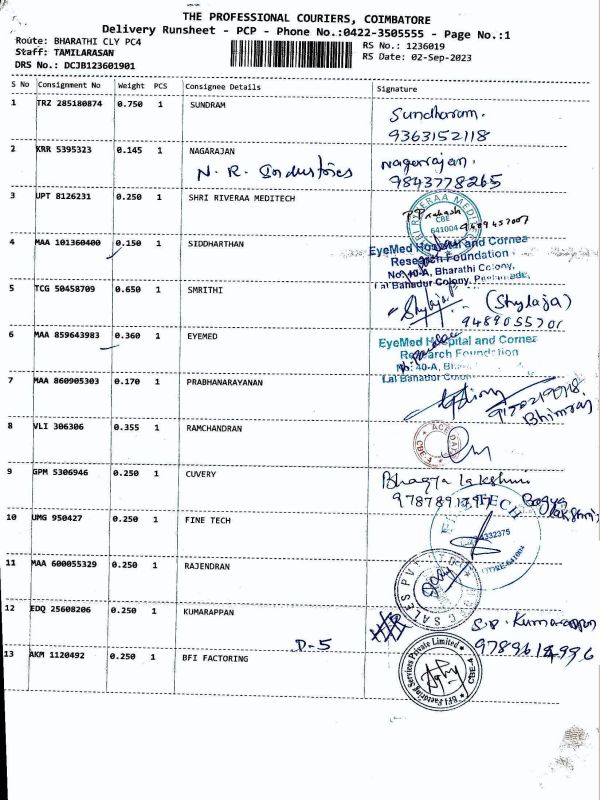 THE PROFESSIONAL COURIERS, COIMBATORE
Delivery Runsheet - PCP - Phone No.:0422-3505555 - Page No.:1
Route: BHARATHI CLY PC4
Staff: TAMILARASAN
DRS No.: DCJB123601901
RS No.: 1236019
RS Date: 02-Sep-2023
S No Consignment No Weight PCS Consignee Details Signature
1 TRZ 285180874 0.750 1 SUNDRAM Sundharam.
9363152118
2 KRR 5395323 0.145 1 NAGARAJAN Nagarajan.
N. R. Industries 9843778265
3 UPT 8126231 0.250 1 SHRI RIVERAA MEDITECH
P. Prakash
CBE
641004 9489457007
4 MAA 101360400 0.150 1 SIDDHARTHAN
EyeMed Hospital and Cornea
Research Foundation
No: 40-A, Bharathi Colony,
Lal Bahadur Colony,
5 TCG 50458709 0.650 1 SMRITHI (Shylaja)
9489055701
6 MAA 859643983 0.360 1 EYEMED
EyeMed Hospital and Cornea
Research Foundation
No: 40-A,
Lal Bahadur
7 MAA 860905303 0.170 1 PRABHANARAYANAN
Bhimraj
8 VLI 306306 0.355 1 RAMCHANDRAN
9 GPM 5306946 0.250 1 CUVERY Bhagya lakshmi
10 UMG 950427 0.250 1 FINE TECH
11 MAA 600055329 0.250 1 RAJENDRAN
12 EDQ 25608206 0.250 1 KUMARAPPAN S.P. Kumarappan
D-5
13 AKM 1120492 0.250 1 BFI FACTORING
BFI Factoring Services Private Limited
CBE-4